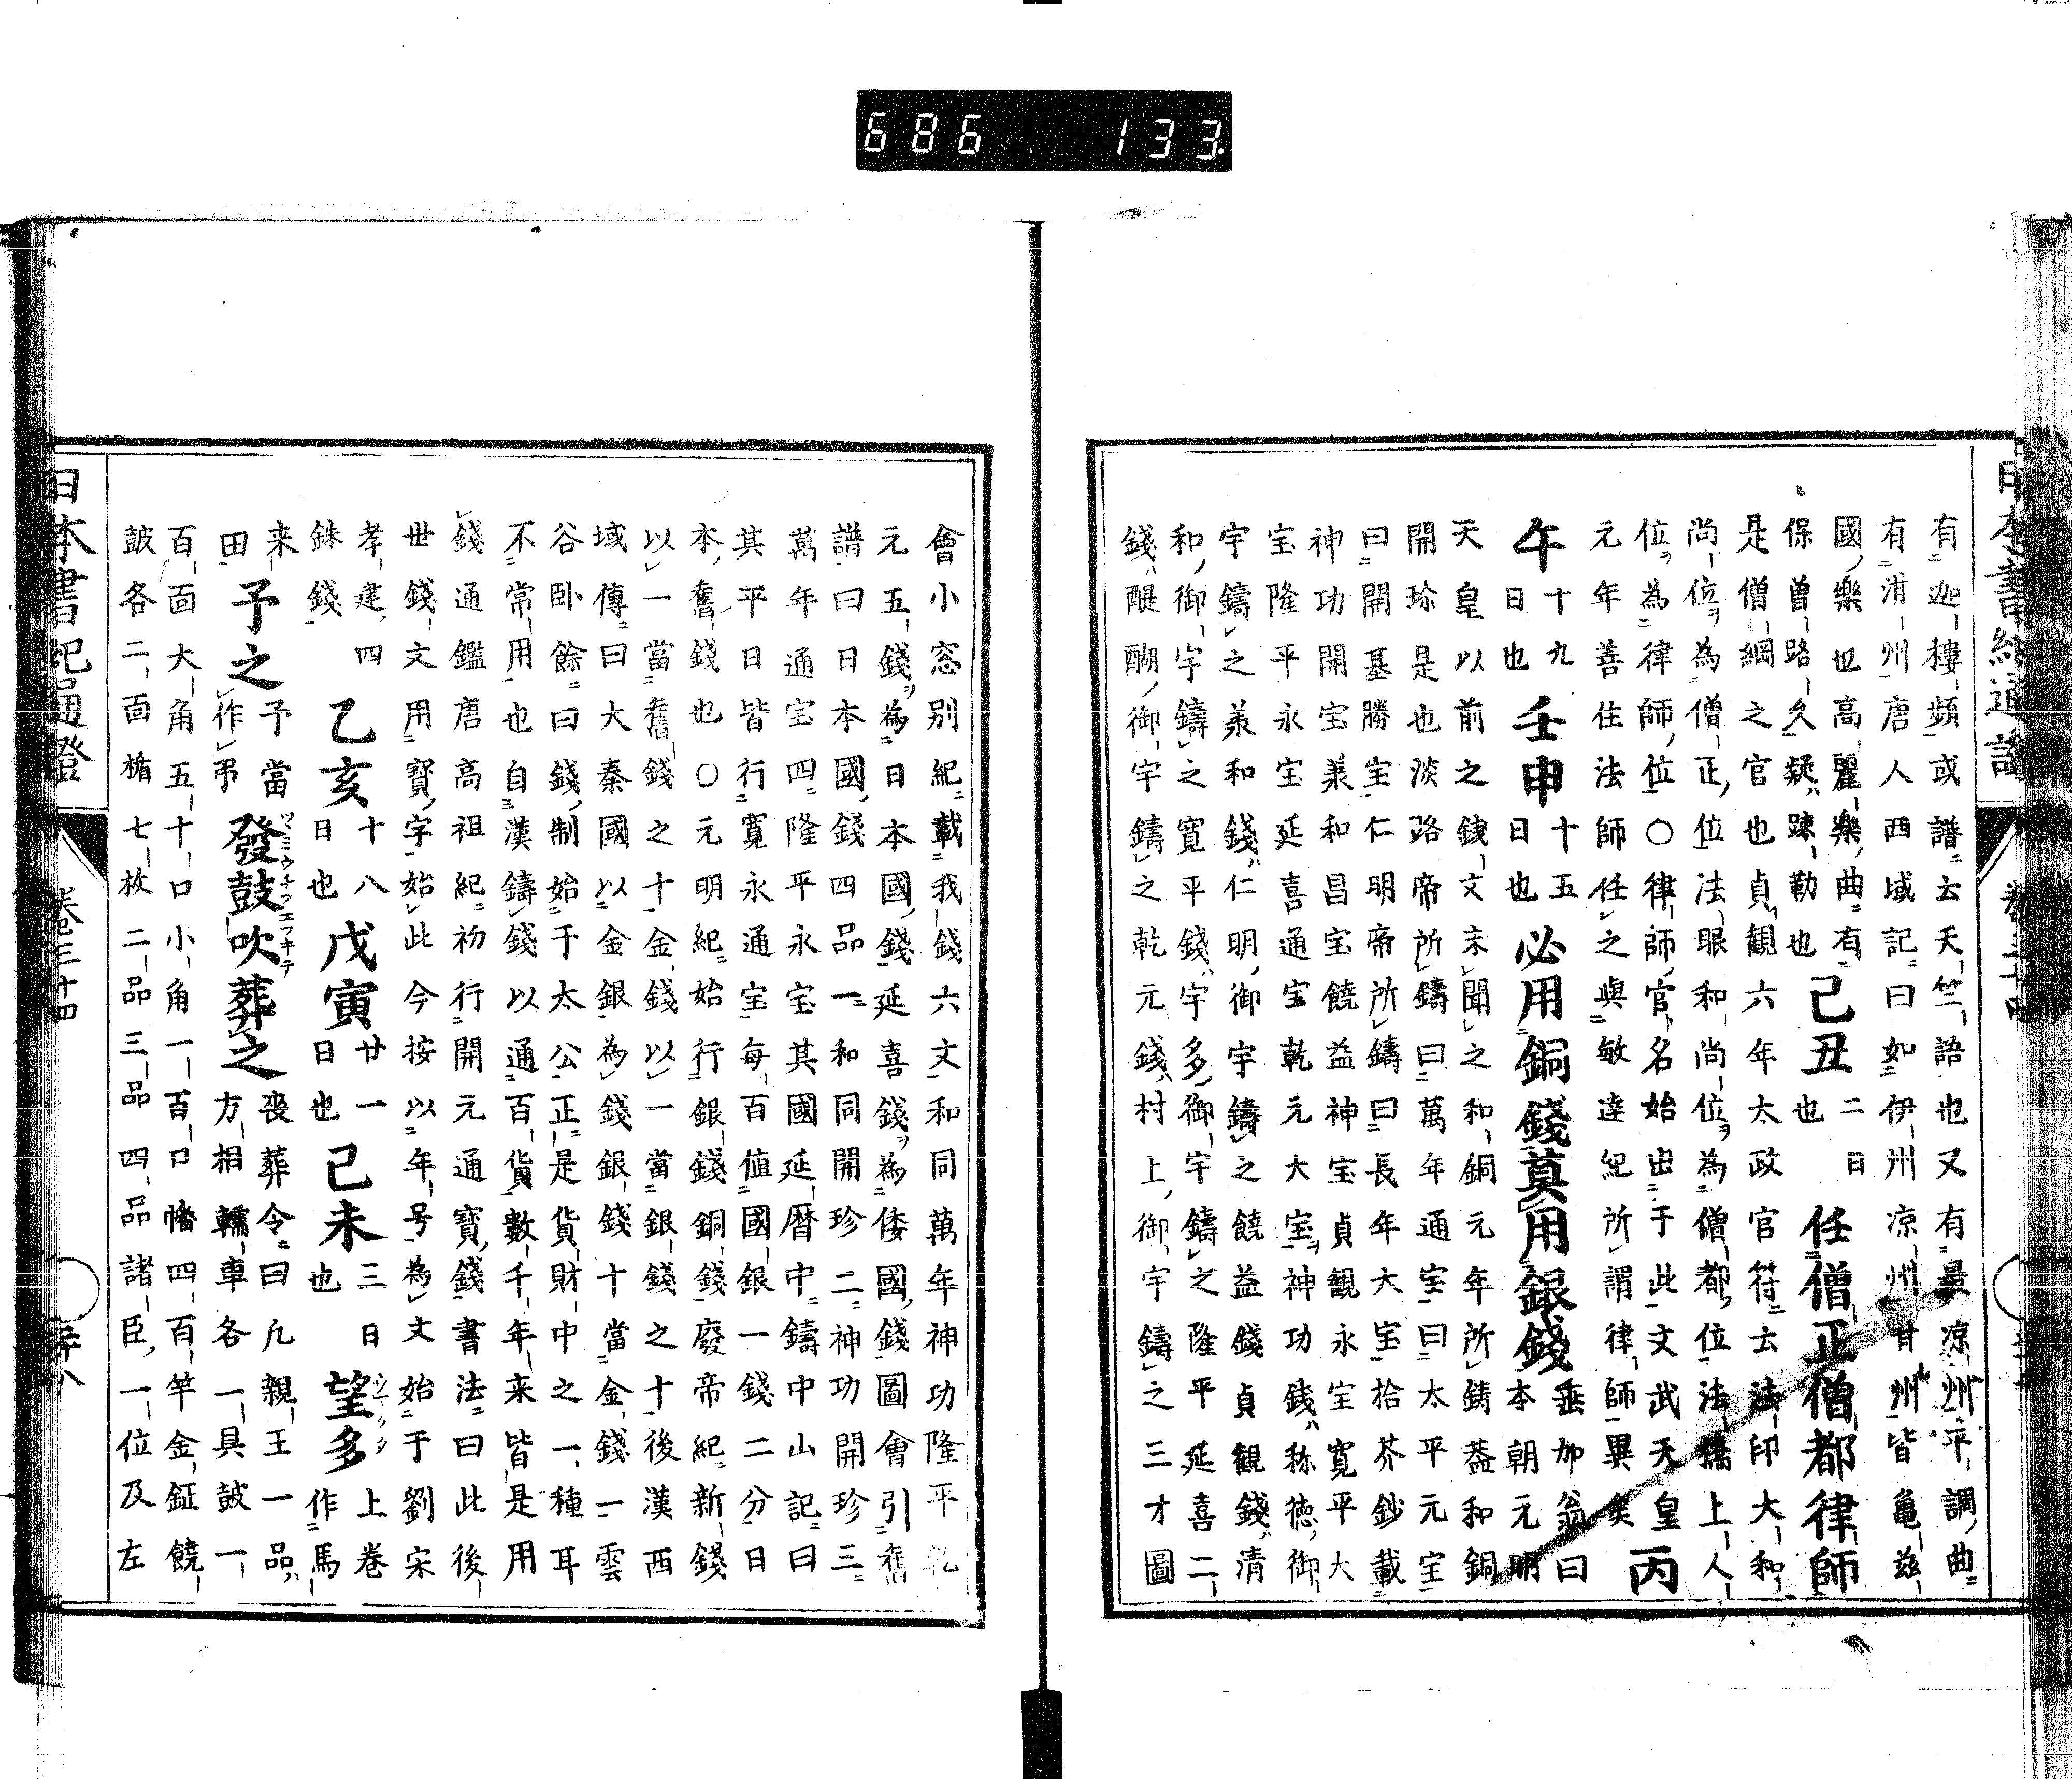 686 133
有迦樓頻或譜云天竺語也又有最凉州平調曲
有渭州唐人西域記曰如伊州凉州甘州皆亀茲
國樂也高麗樂曲有
保曽路久疑踈勒也
己丑
二日
也
任僧正僧都律師
是僧綱之官也貞観六年太政官符云法印大和
尚位為僧正位法眼和尚位為僧都位法橋上人
位為律師位○律師官名始出于此文武天皇
丙
元年善住法師任之與敏達紀所謂律師異矣
午
十九
日也
壬申
十五
日也
必用銅錢莫用銀錢
垂加翁曰
本朝元明
天皇以前之錢文未聞之和銅元年所鋳蓋和銅
開珎是也淡路帝所鑄曰萬年通宝曰太平元宝
曰開基勝宝仁明帝所鑄曰長年大宝拾芥鈔載
神功開宝兼和昌宝饒益神宝貞観永宝寛平大
宝隆平永宝延喜通宝乾元大宝神功錢称徳御
宇鑄之兼和錢仁明御宇鑄之饒益錢貞観錢清
和御宇鑄之寛平錢宇多御宇鑄之隆平延喜二
錢醍醐御宇鑄之乾元錢村上御宇鑄之三才圖
日本書紀通證
卷三十四
會小窓別紀載我錢六文和同萬年神功隆平乾
元五錢為日本國錢延喜錢為倭國錢圖會引舊
譜曰日本國錢四品一和同開珍二神功開珍三
萬年通宝四隆平永宝其國延暦中鑄中山記曰
其平日皆行寛永通宝每百値國銀一錢二分日
本舊錢也○元明紀始行銀錢銅錢廢帝紀新錢
以一當舊錢之十金錢以一當銀錢之十後漢西
域傳曰大秦國以金銀為錢銀錢十當金錢一雲
谷臥餘曰錢制始于太公正是貨財中之一種耳
不常用也自漢鑄錢以通百貨數千年来皆是用
錢通鑑唐高祖紀初行開元通寶錢書法曰此後
世錢文用寳字始此今按以年号為文始于劉宋
孝建四
銖錢
乙亥
十八
日也
戊寅
廿一
日也
己未
三日
也
望多
上卷
作馬
来
田
予之
予當
作弔
發鼓吹葬之
喪葬令曰凡親王一品
方相轜車各一具皷一
百面大角五十口小角一百口幡四百竿金鉦饒
皷各二面楯七枚二品三品四品諸臣一位及左